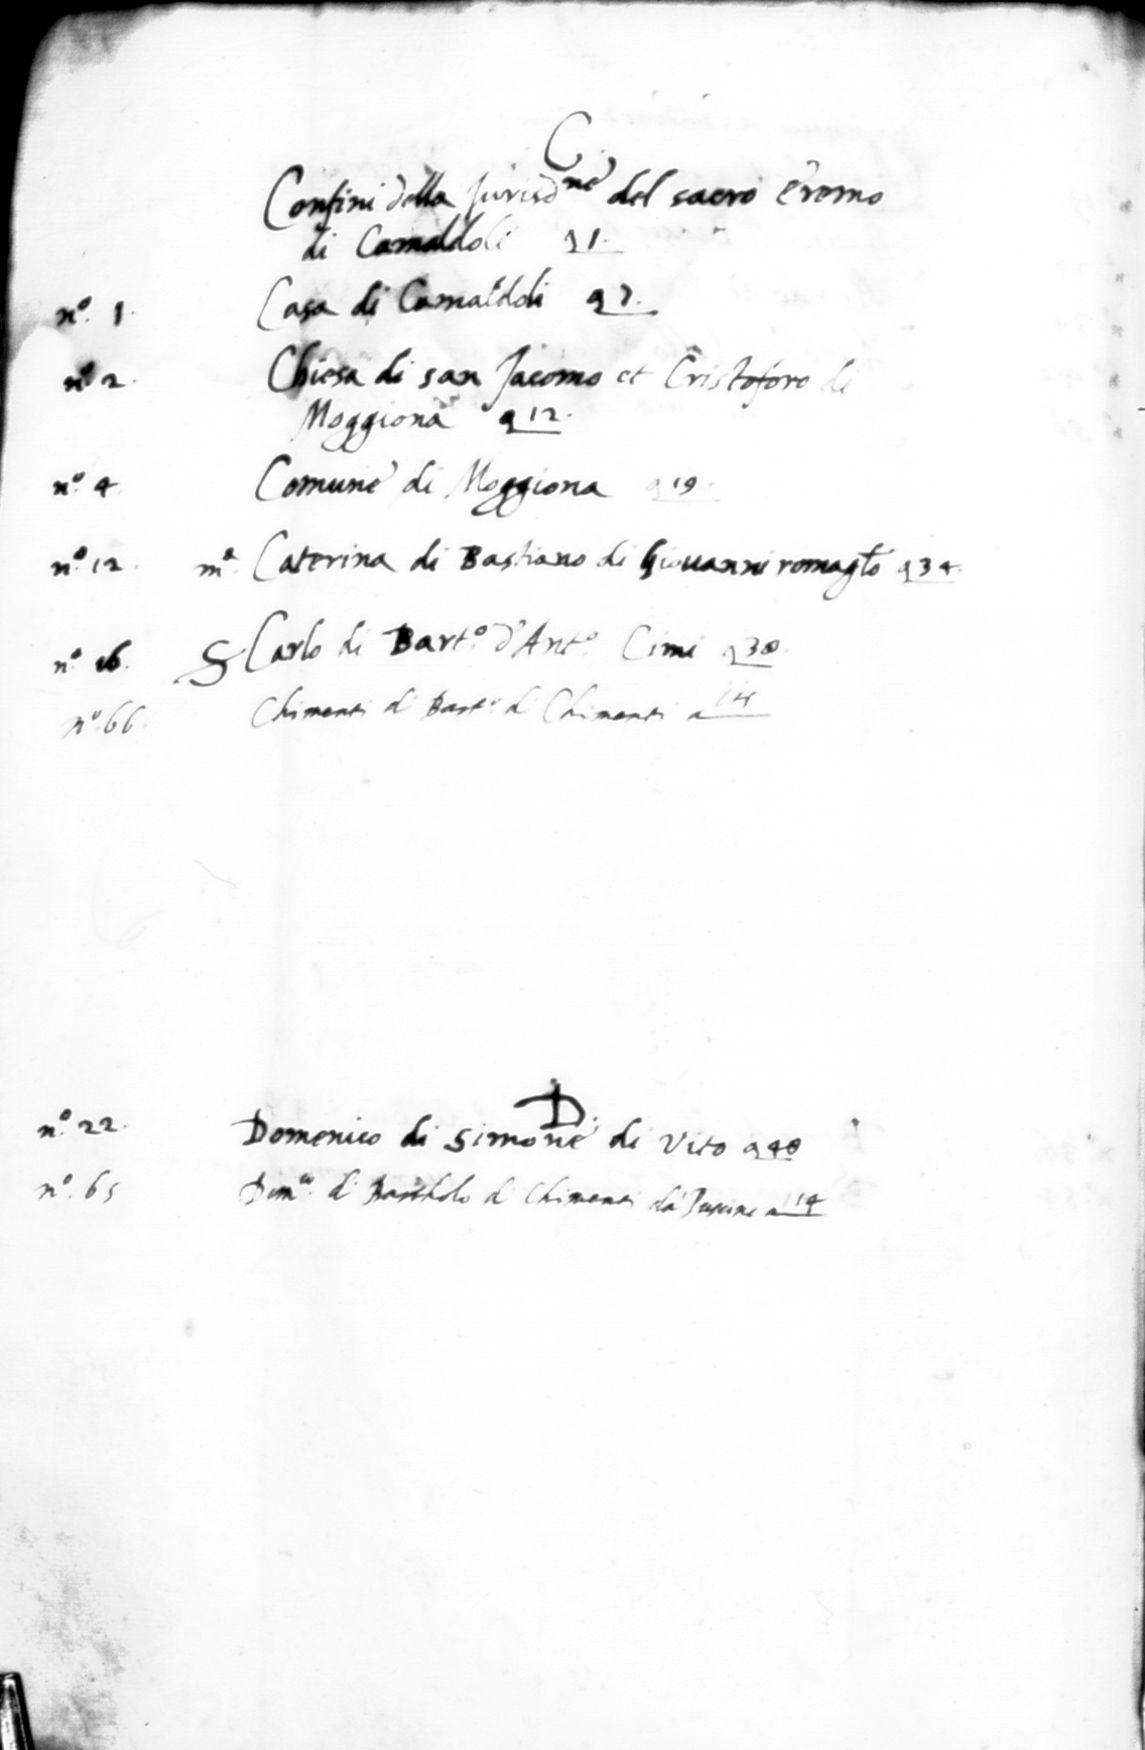 C
Confini della Jurisd.ne del sacro Eremo
di Camaldoli a 1.
n.o 1. Casa di Camaldoli a 7.
n.o 2. Chiesa di san Jacomo et Cristoforo di
Moggiona a 12.
n.o 4. Comune di Moggiona a 19.
n.o 12. m.a Caterina di Bastiano di Giouanni a 34.
n.o 16. Carlo di Bart.o d'Ant.o Cimi a 38.
n.o 66. Chimenti di Bart.o di Chimenti a 114
D.
n.o 22. Domenico di Simone di Vito a 48
n.o 65 Dom.co di Bartholo di Chimenti da a 114